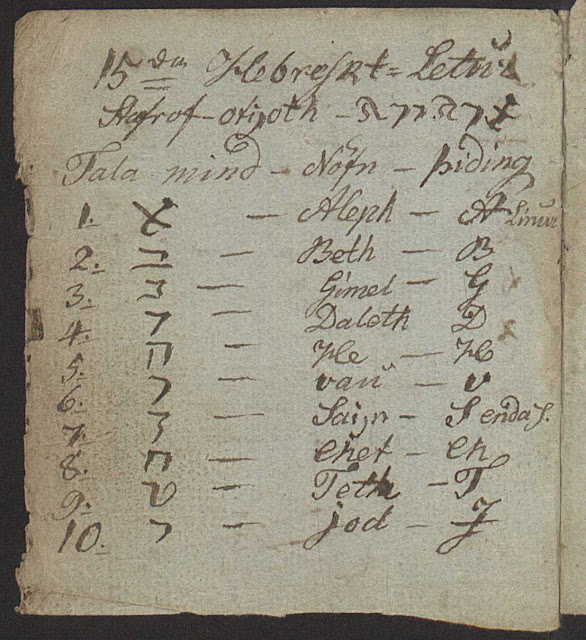 15 dn Hebreskt= Letur
Stafrof - otijoth -
Tala mind - Nöfn - þiding
1. א - Aleph - A Linur
2. ב - Beth - B
3. ג - Gimel - G
4. ד - Daleth D
5. ה - He - H
6. ו - vau - v
7. ז - Saijn - S endas.
8. ח - Chet - Ch
9. ט - Teth - T
10. י - jod - J